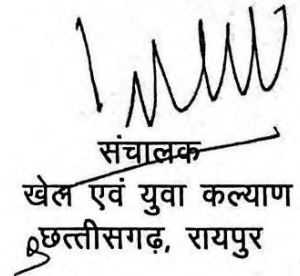 संचालक
खेल एवं युवा कल्याण
छत्तीसगढ़, रायपुर